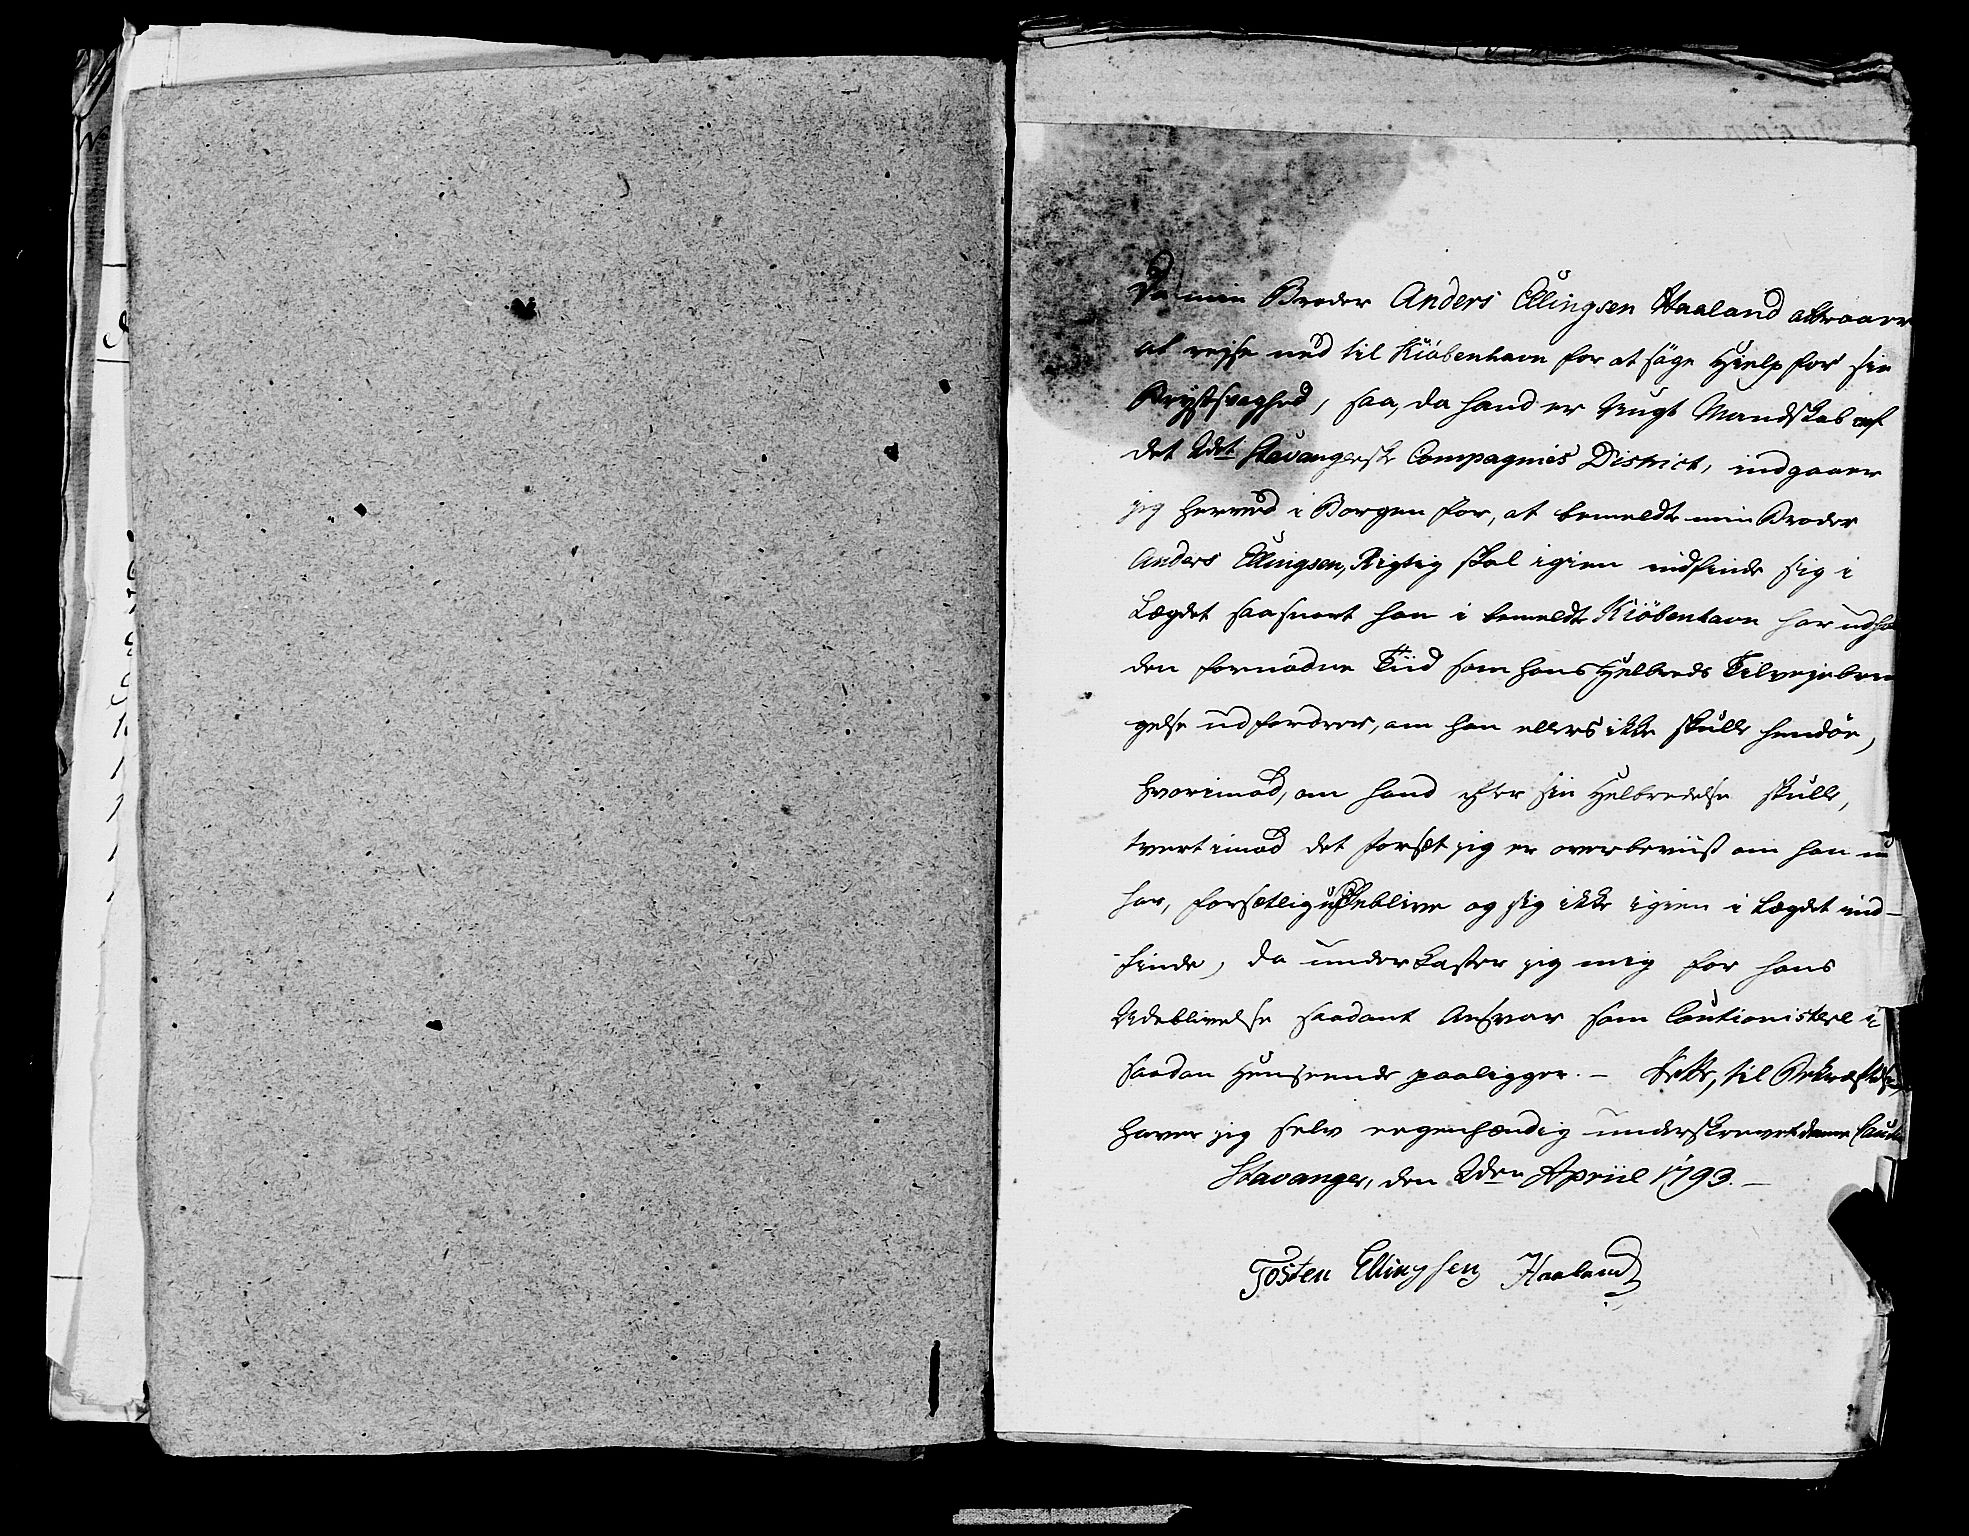 Da min Broder Anders Ellingsen Haaland attraaer
at rejse ned til Kiöbenhavn for at söge Hielp for sin
Brystsvaghed, saa, da hand er Ungt Mandskab af
det 2det Stavangerske Compagnies District, indgaaer
jeg herved i Borgen for, at bemeldte min Broder
Anders Ellingsen, Rigtig skal igien indfinde sig i
Lægdet saasnart han i bemeldte Kiöbenhavn har udh
den fornödne Tiid som hans Helbreds Tilvejebrin
gelse udfordrer, om han ellers ikke skulle hendöe,
hvorimod, om hand efter sin Helbredelse skulle,
tvertimod det Forsæt jeg er overbeviist om han nu
har, forsætlig udeblive og sig ikke igien i Lægdet ind-
finde, da underkaster jeg mig for hans
Udeblivelse saadant Ansvar som Cautionistere i
saadan Henseende paaligger. - Dette, til Bekræftelse,
haver jeg selv egenhændig underskrevet denne Caution
Stavanger, den 2den Apriil 1793. -
Tosten Ellingsen Haaland